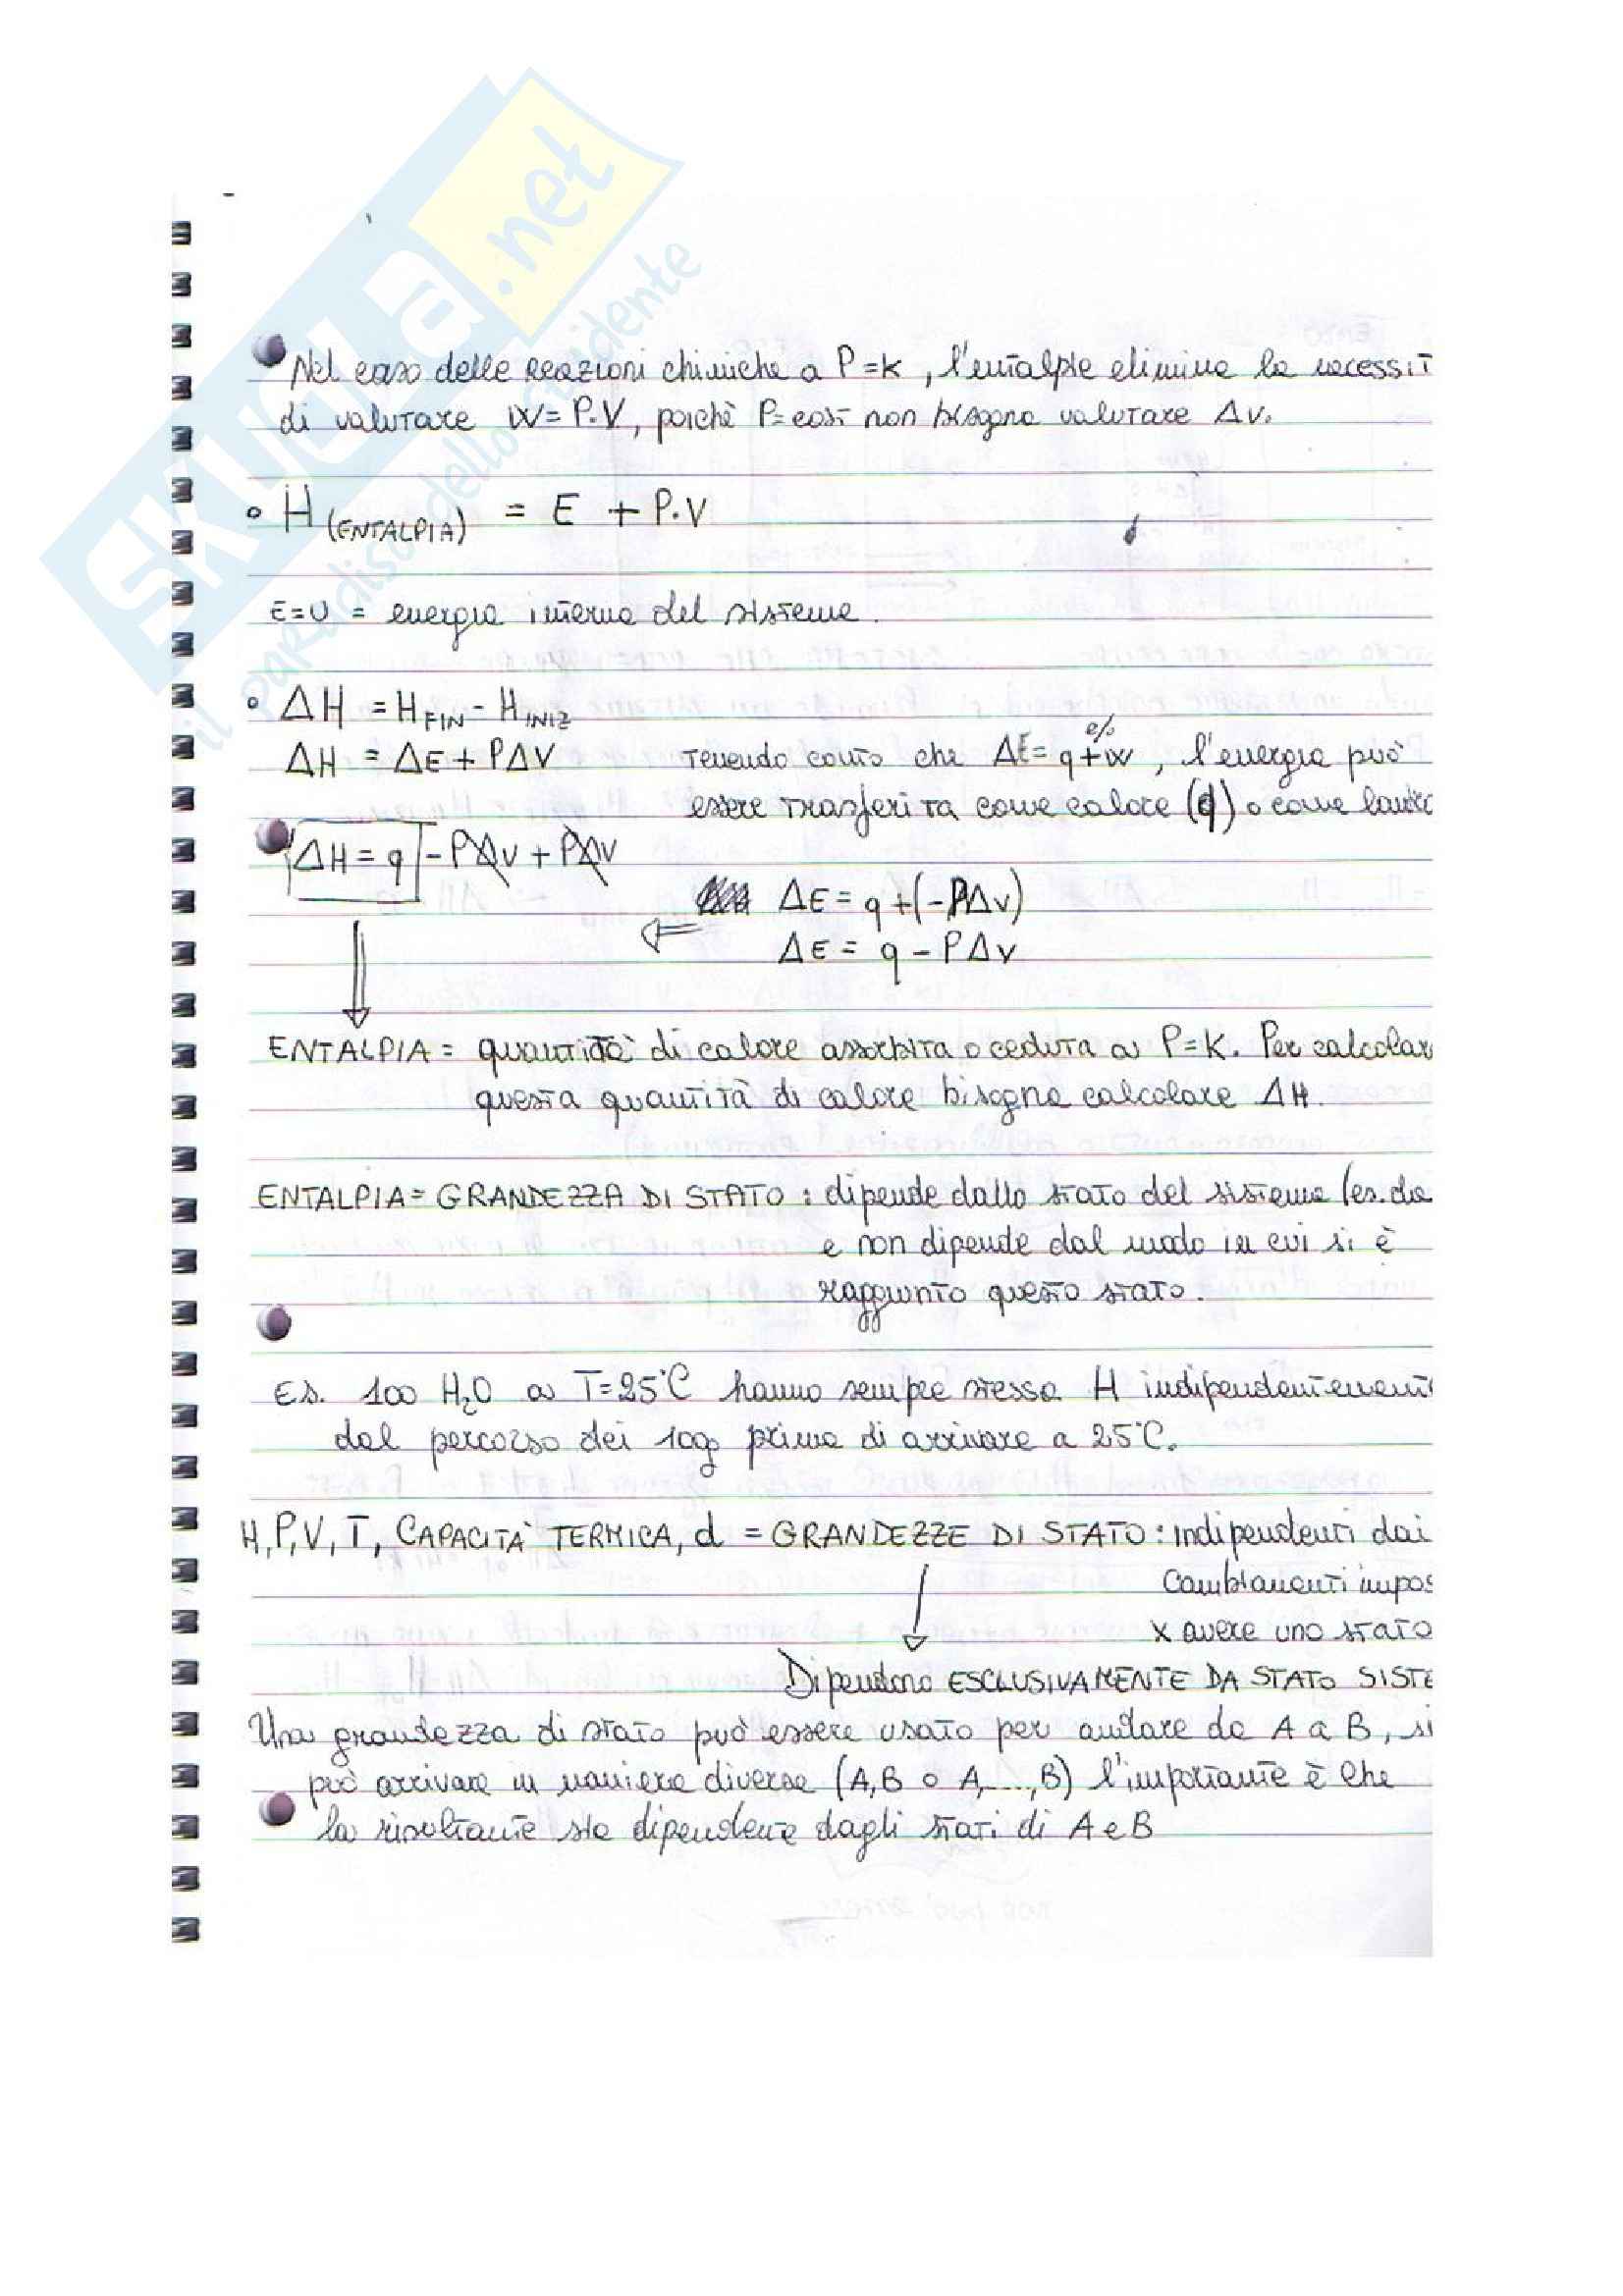 SKUOLA.net
il paradiso dello studente
Nel caso delle reazioni chimiche a P=K, l'entalpie elimina la necessit
di valutare W=P.V, poichè P=cost non bisogna valutare ΔV.
H(ENTALPIA) = E + P.V
E=U = energia interna del sistema.
ΔH = HFIN - HINIZ
ΔH = ΔE + PΔV tenendo conto che ΔE= q+w, l'energia può
e/o
essere trasferita come calore (q) o come lavoro
ΔH = q - PΔV + PΔV
ΔE = q +(-PΔV)
ΔE = q - PΔV
ENTALPIA = quantità di calore assorbita o ceduta a P=K. Per calcolar
questa quantità di calore bisogna calcolare ΔH.
ENTALPIA= GRANDEZZA DI STATO : dipende dallo stato del sistema (es. da
e non dipende dal modo in cui si è
raggiunto questo stato.
Es. 100 H2O a T=25°C hanno sempre stessa H indipendentement
dal percorso dei 100g prima di arrivare a 25°C.
H, P, V, T, CAPACITA' TERMICA, d = GRANDEZZE DI STATO : indipendenti dai
cambiamenti impos
x avere uno stato
Dipendono ESCLUSIVAMENTE DA STATO SISTE
Una grandezza di stato può essere usato per andare da A a B, si
può arrivare in maniera diversa (A,B o A,....,B) l'importante è che
la risultante sia dipendente dagli stati di A e B